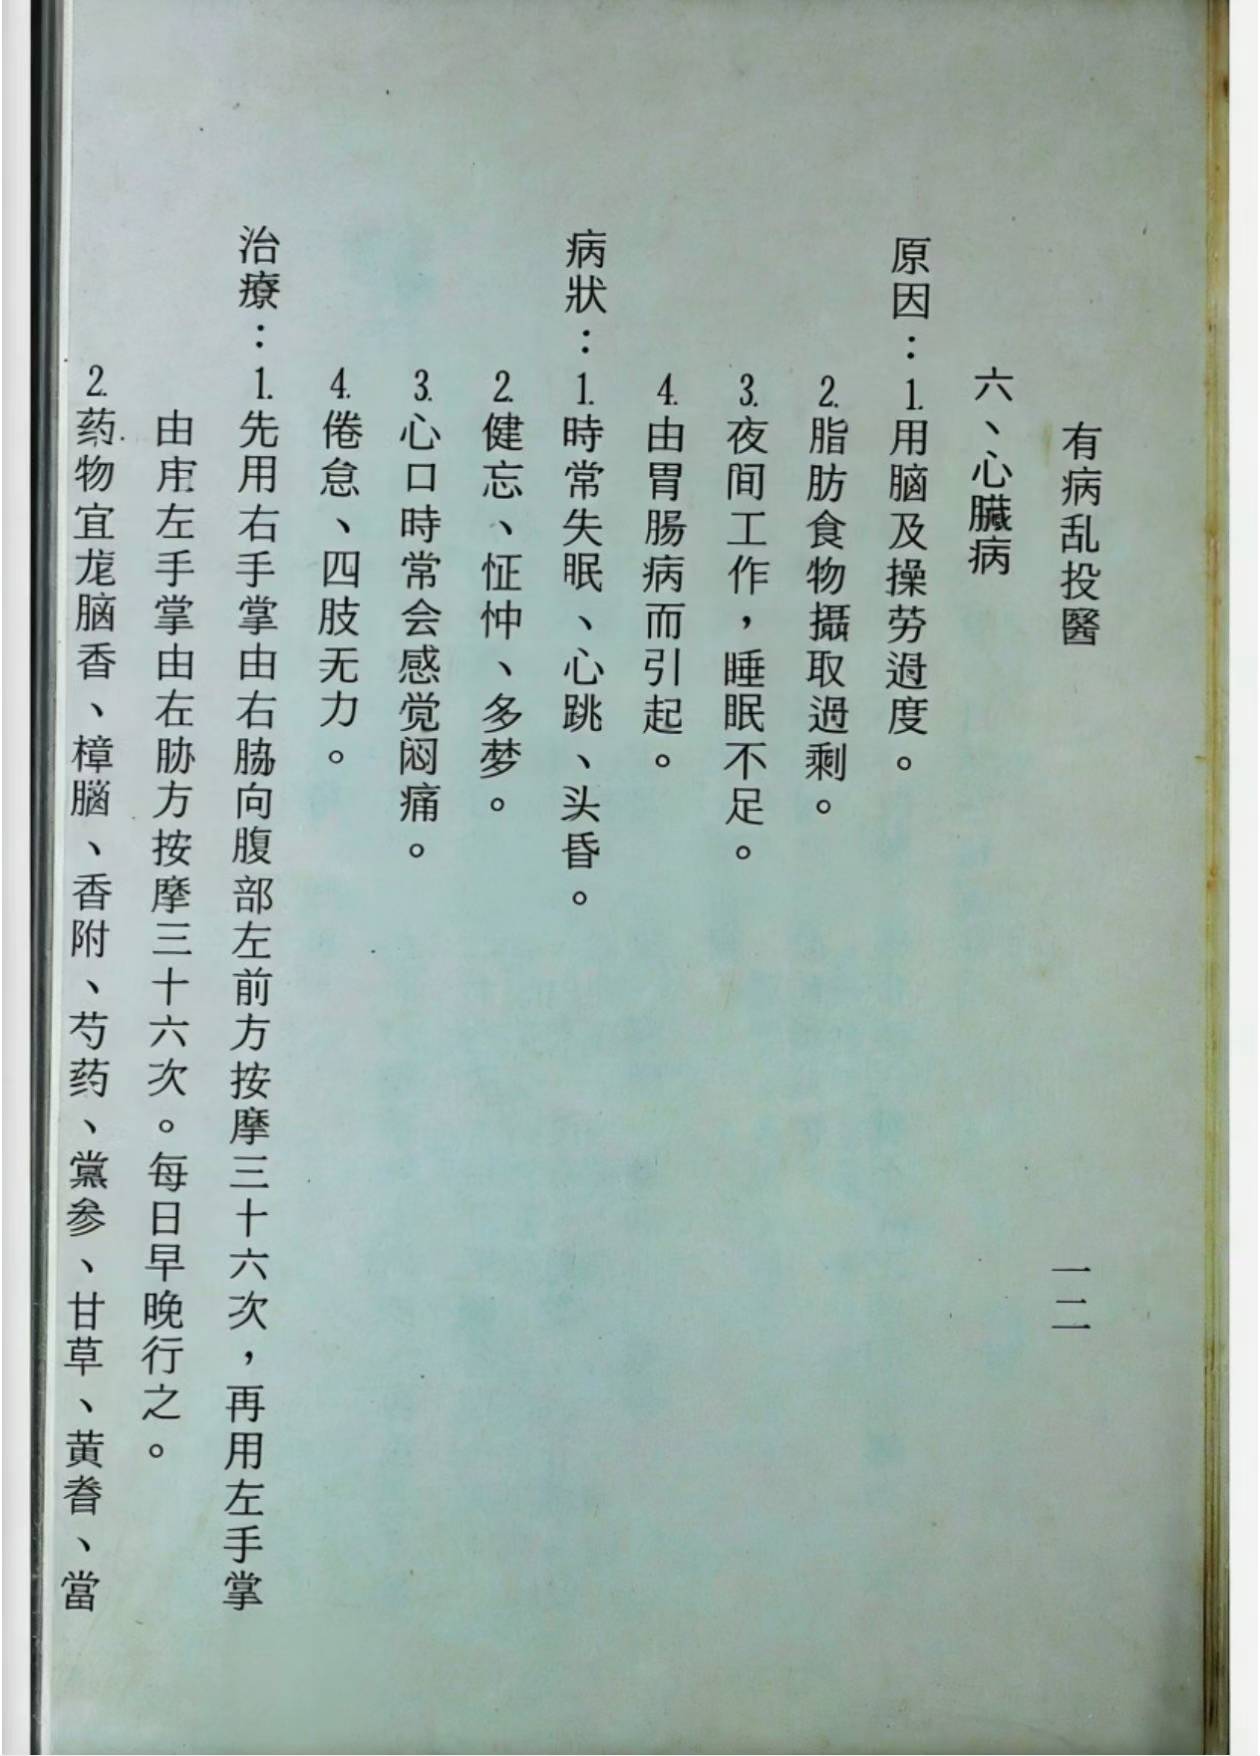 有病乱投醫
一二
六、心臟病
原因：1.用脑及操劳过度。
2.脂肪食物攝取过剩。
3.夜间工作，睡眠不足。
4.由胃腸病而引起。
病狀：1.時常失眠、心跳、头昏。
2.健忘、怔忡、多梦。
3.心口時常会感觉闷痛。
4.倦怠、四肢无力。
治療：1.先用右手掌由右胁向腹部左前方按摩三十六次，再用左手掌
由左手掌由左胁方按摩三十六次。每日早晚行之。
2.药物宜龙脑香、樟脑、香附、芍药、黨参、甘草、黄、當